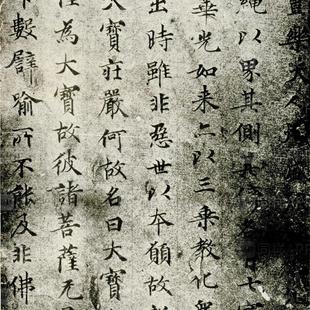 樂天人
繩以界其側其傍各有七寶
華光如来亦以三乘教化眾
出時雖非惡世以本願故
大寶莊嚴何故名曰大寶
為大寶故彼諸菩薩无
數譬喻所不能及非佛